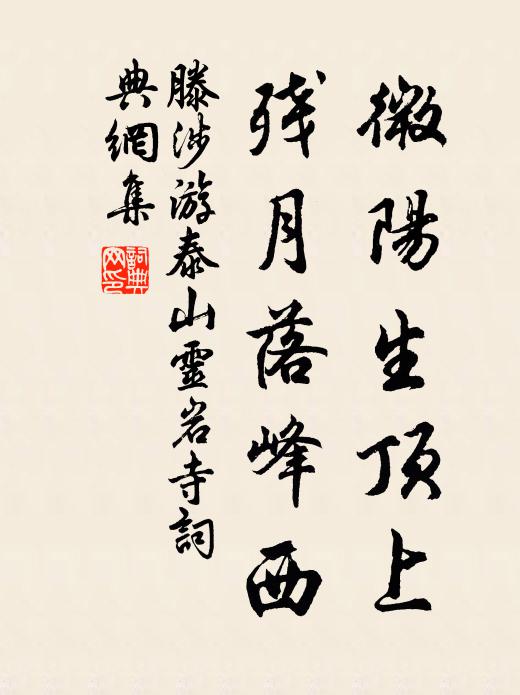 微陽生顶上
残月落峰西
滕涉游泰山靈岩寺詞
典網集
詞典
网印